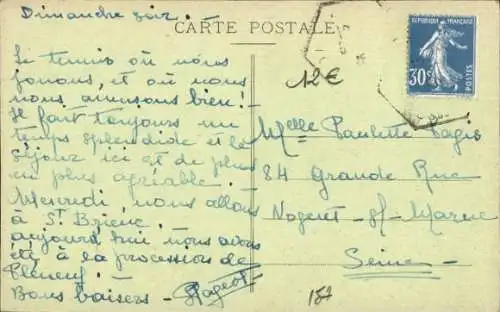 Dimanche soir.
CARTE POSTALE
REPUBLIQUE FRANÇAISE
30c
POSTES
12€
Le tennis où nous
jouons, et où nous
nous amusons bien!
Il fait toujours un
temps splendide et le
séjour ici est de plus
en plus agréable!
Mercredi, nous allons
à St Brieuc.
aujourd'hui nous avons
été à la procession de
Pléneuf.
Bons baisers -
Melle Paulette
84 Grande Rue
Nogent-s/-Marne
Seine
187